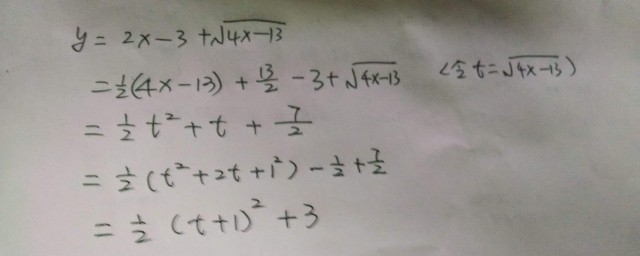 y = 2x-3+√(4x-13)
= ½(4x-13) + 13/2 - 3 + √(4x-13) (令 t = √(4x-13))
= ½ t² + t + 7/2
= ½ (t² + 2t + 1²) - ½ + 7/2
= ½ (t+1)² + 3